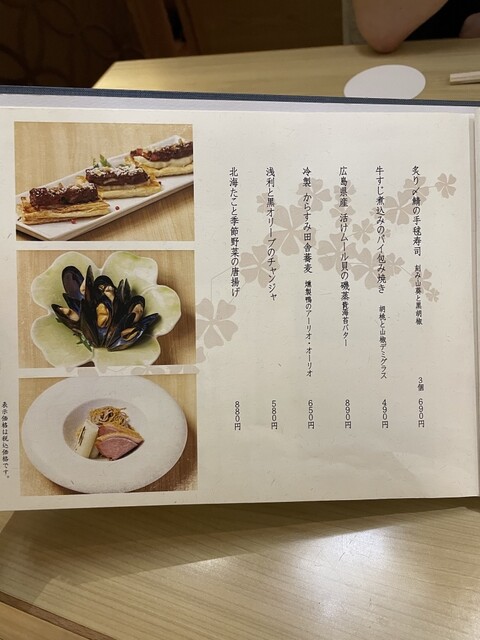 炙り〆鯖の手毬寿司 刻み山葵と黒胡椒 3個 690円
牛すじ煮込みのパイ包み焼き 胡桃と山椒デミグラス 490円
広島県産 活けムール貝の磯蒸 岩海苔バター 890円
冷製 からすみ田舎蕎麦 燻製鴨のアーリオ・オーリオ 650円
浅利と黒オリーブのチャンジャ 580円
北海たこと季節野菜の唐揚げ 880円
表示価格は税込価格です。